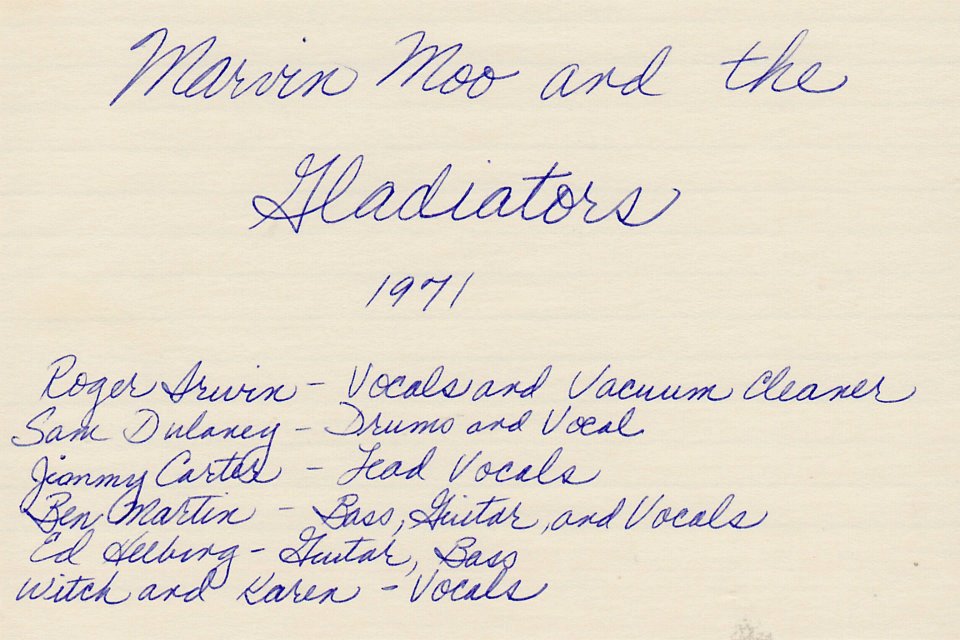 Marvin Moo and the
Gladiators
1971
Roger Irwin - Vocals and Vacuum Cleaner
Sam Dulaney - Drums and Vocal
Jimmy Carter - Lead Vocals
Ben Martin - Bass, Guitar, and Vocals
Ed - Guitar, Bass
Witch and Karen - Vocals